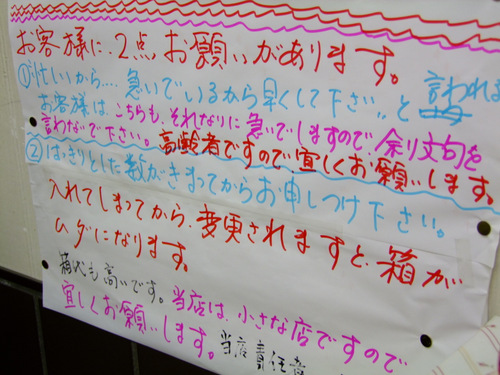 お客様に、2点お願いがあります。
①忙しいから…急いでいるから早くして下さい。と言われる
お客様は、こちらも、それなりに急いでしますので、余り文句を
言わないで下さい。高齢者ですので、宜しくお願いします。
②はっきりとした数がきまってからお申しつけ下さい。
入れてしまってから、変更されますと、箱が
ムダになります。
箱代も高いです。当店は、小さな店ですので
宜しくお願いします。当店責任者